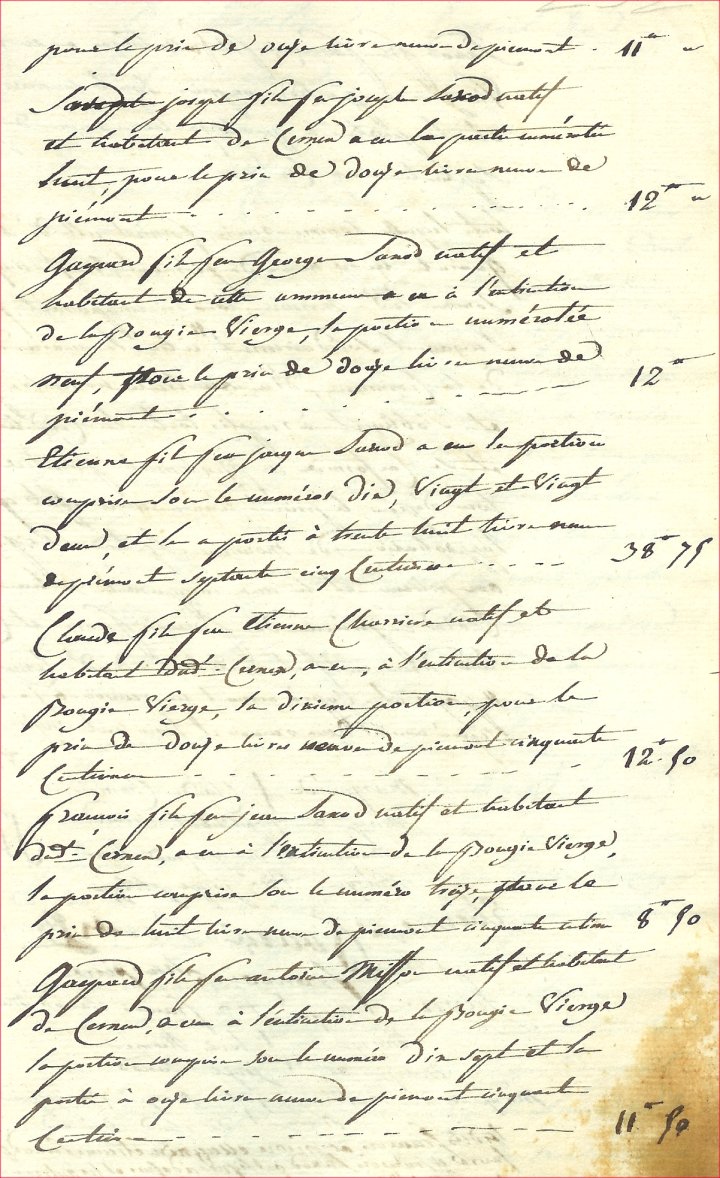 pour le prix de onze livre neuve de piemont . 11 "
joseph fils feu joseph Sanod natif
et habitant de Cernex a eu la porte numérotée
huit, pour le prix de douze livre neuve de
piémont 12 "
Gaspard fils feu George Sanod natif et
habitant de cette commune a eu à l'extinction
de la Bougie Vierge, la portion numérotée
neuf, pour le prix de douze livre neuve de
piémont 12
Etienne fils feu jacque Sanod a eu la portion
comprise sou le numéros dix, Vingt et Vingt
deux, et la portée à trente huit livre neuve
de piémont septante cinq Centimes 38 75
Claude fils feu Etienne Charrière natif et
habitant dud. Cernex, a eu, à l'extinction de la
Bougie Vierge, la dixieme portion, pour le
prix de douze livres neuve de piemont cinquante
Centimes 12 50
françois fils feu jean Sanod natif et habitant
dud. Cernex, a eu à l'extinction de la Bougie Vierge,
la portion comprise sou le numéro treize, pour le
prix de huit livre neuve de piemont cinquante centim 8 50
Gaspard fils feu antoine natif et habitant
de Cernex, a eu à l'extinction de la Bougie Vierge
la portion comprise sou le numéro dix sept et la
portée à onze livre neuve de piemont cinquante
Centime 11 50